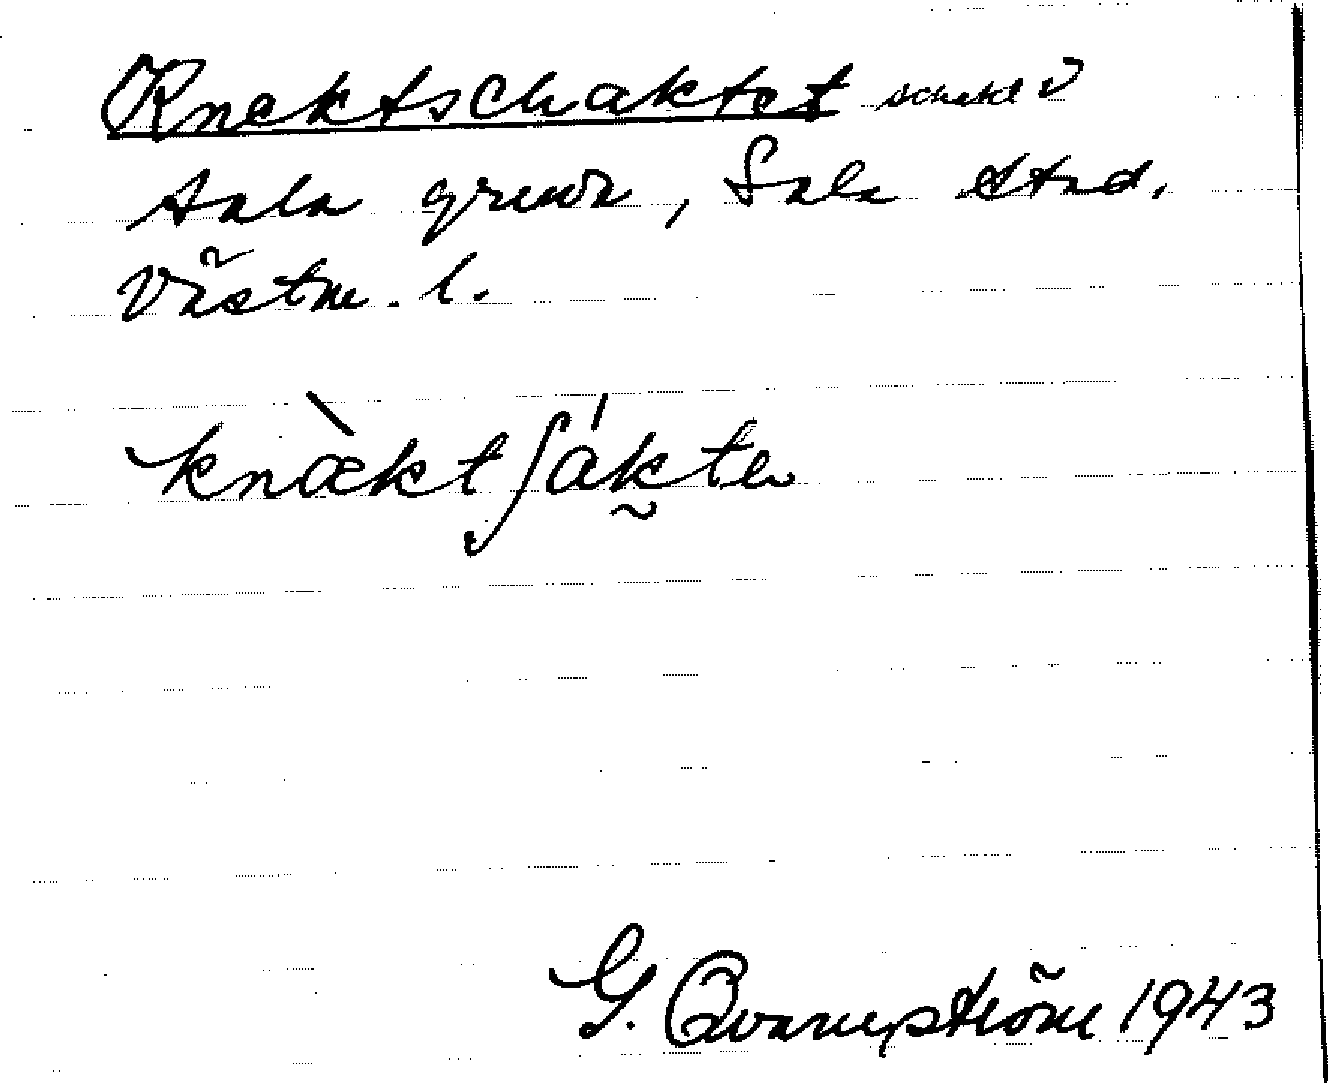 Knektschaktet schakt i
Sala gruva, Sala stad,
Västm. l.
knæ̀ktʃák̰te
G. Qvarnström 1943